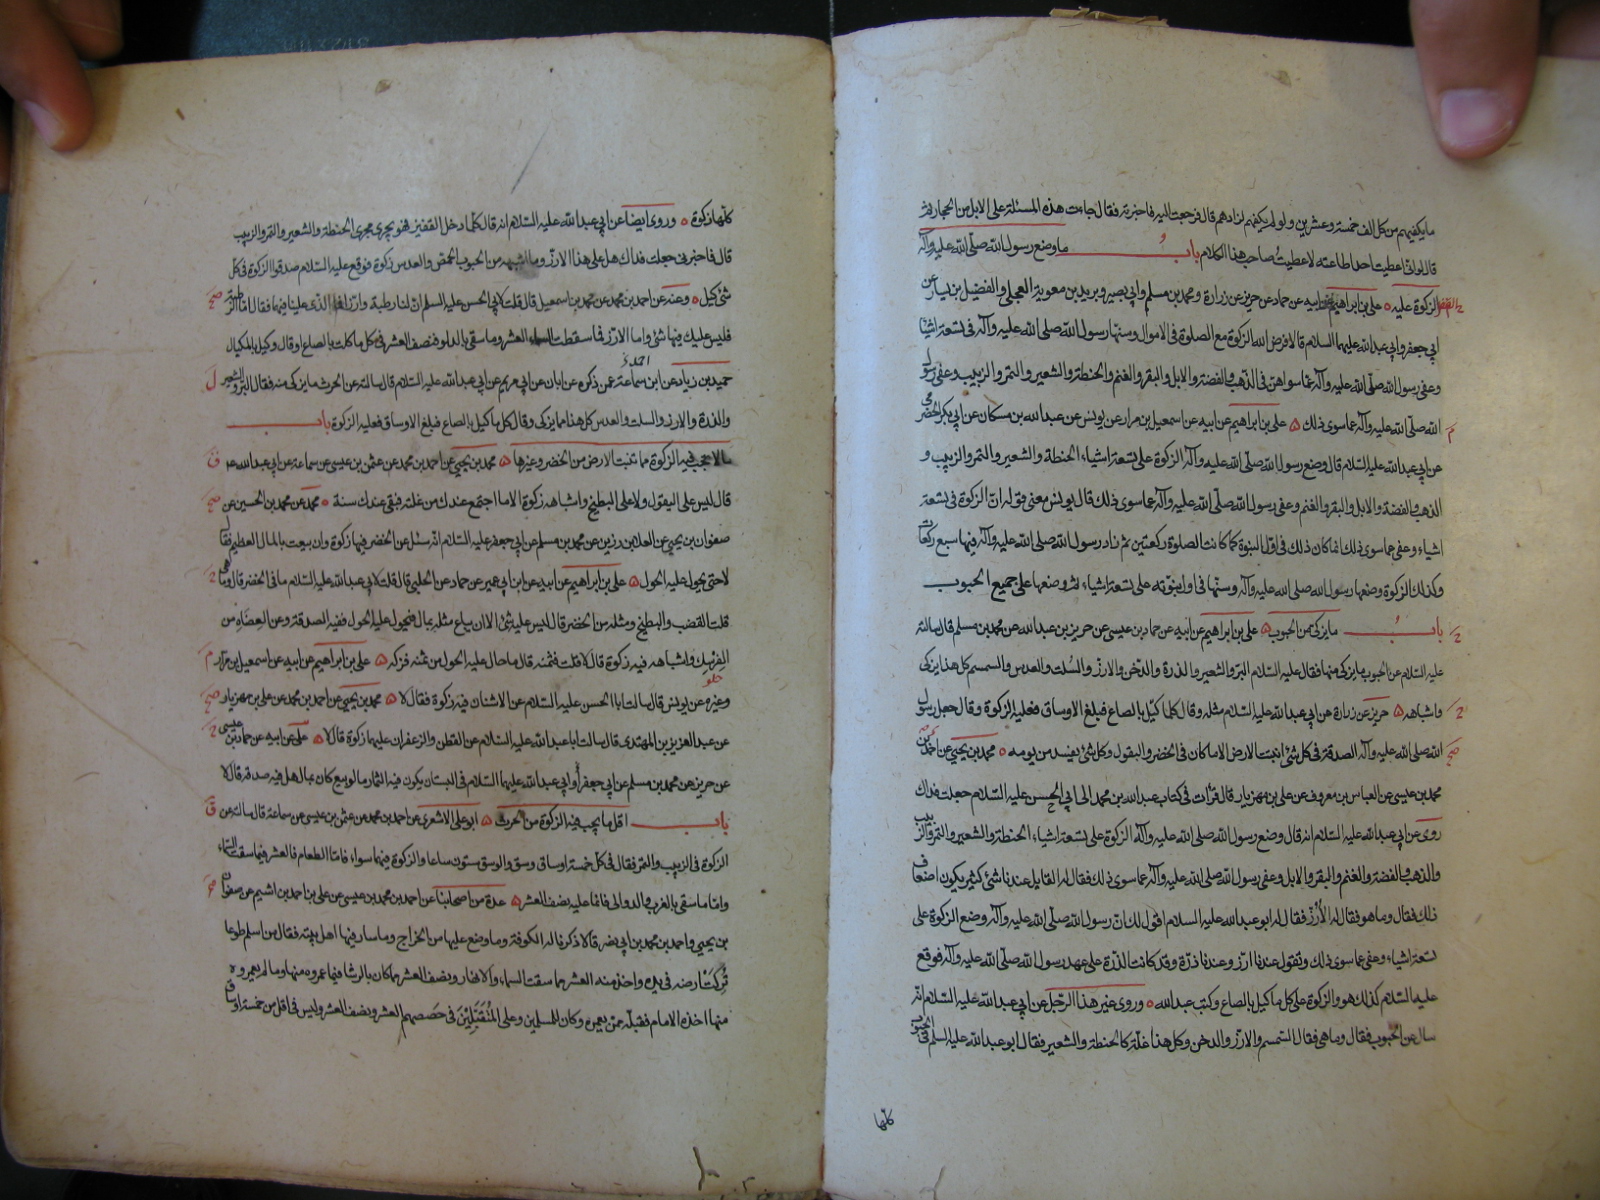 ما يكفيهم من كل الف خمسة وعشرين ولو لم يكفهم لزادهم قال فرجعت اليه فاخبرته فقال جاءت هذه المسئلة على الابل من الحجاز ثم
قال لو اني اعطيت احدا طاعته لاعطيت صاحب هذا الكلام باب ما وضع رسول الله صلى الله عليه وآله
الزكوة عليه ٥ علي بن ابراهيم عن ابيه عن حماد عن حريز عن زرارة ومحمد بن مسلم وابي بصير وبريد بن معوية العجلي والفضيل بن يسار عن
ابي جعفر وابي عبد الله عليهما السلام قالا فرض الله الزكوة مع الصلوة في الاموال وسنها رسول الله صلى الله عليه وآله في تسعة اشياء
وعفى رسول الله صلى الله عليه وآله عما سواهن في الذهب والفضة والابل والبقر والغنم والحنطة والشعير والتمر والزبيب وعفى رسول
الله صلى الله عليه وآله عما سوى ذلك ٥ علي بن ابراهيم عن ابيه عن اسمعيل بن مرار عن يونس عن عبد الله بن مسكان عن ابي بكر الحضرمي
عن ابي عبد الله عليه السلام قال وضع رسول الله صلى الله عليه وآله الزكوة على تسعة اشياء الحنطة والشعير والتمر والزبيب و
الذهب والفضة والابل والبقر والغنم وعفى رسول الله صلى الله عليه وآله عما سوى ذلك قال يونس معنى قوله ان الزكوة في تسعة
اشياء وعفى عما سوى ذلك انما كان ذلك في اول النبوة كما كانت الصلوة ركعتين ثم زاد رسول الله صلى الله عليه وآله فيها سبع ركعات
وكذلك الزكوة وضعها رسول الله صلى الله عليه وآله وسنها في اول نبوته على تسعة اشياء ثم وضعها على جميع الحبوب
باب ما يزكى من الحبوب ٥ علي بن ابراهيم عن ابيه عن حماد بن عيسى عن حريز بن عبد الله عن محمد بن مسلم قال سالته
عليه السلام عن الحبوب ما يزكى منها فقال عليه السلام البر والشعير والذرة والدخن والارز والسلت والعدس والسمسم كل هذا يزكى
واشباهه ٥ حريز عن زرارة عن ابي عبد الله عليه السلام مثله وقال كلما كيل بالصاع فبلغ الاوساق فعليه الزكوة وقال جعل رسول
الله صلى الله عليه وآله الصدقة في كل شئ انبتت الارض الا ما كان في الخضر والبقول وكل شئ يفسد من يومه ٥ محمد بن يحيى عن احمد بن
محمد بن عيسى عن العباس بن معروف عن علي بن مهزيار قال قرأت في كتاب عبد الله بن محمد الى ابي الحسن عليه السلام جعلت فداك
روى عن ابي عبد الله عليه السلام انه قال وضع رسول الله صلى الله عليه وآله الزكوة على تسعة اشياء الحنطة والشعير والتمر والزبيب
والذهب والفضة والغنم والبقر والابل وعفى رسول الله صلى الله عليه وآله عما سوى ذلك فقال له القايل عندنا شئ كثير يكون اضعاف
ذلك فقال وما هو فقال له الأرز فقال له ابو عبد الله عليه السلام اقول لك ان رسول الله صلى الله عليه وآله وضع الزكوة على
تسعة اشياء وعفى عما سوى ذلك وتقول عندنا ارز وعندنا ذرة وقد كانت الذرة على عهد رسول الله صلى الله عليه وآله فوقع
عليه السلام كذلك هو والزكوة على كل ما كيل بالصاع وكتب عبد الله ٥ وروى غير هذا الرجل عن ابي عبد الله عليه السلام انه
سال عن الحبوب فقال وما هي فقال السمسم والارز والدخن وكل هذا غلة كالحنطة والشعير فقال ابو عبد الله عليه السلم في الحبوب
كلها
كلها زكوة ٥ وروى ايضا عن ابي عبد الله عليه السلام انه قال كلما دخل القفيز فهو يجري مجرى الحنطة والشعير والتمر والزبيب
قال فاخبرني جعلت فداك هل على هذا الارز وما اشبهه من الحبوب الحمص والعدس زكوة فوقع عليه السلام صدقوا الزكوة في كل
شئ كيل ٥ وعنه عن احمد بن محمد عن محمد بن اسمعيل قال قلت لابي الحسن عليه السلم ان لنا رطبة وارزا فما الذي علينا فيهما فقال اما الرطبة
فليس عليك فيها شئ واما الارز فما سقطت السماء العشر وما سقي بالدلو فنصف العشر في كل ما كلت بالصاع او قال وكيل بالمكيال
حميد بن زياد عن ابن سماعة عمن ذكره عن ابان عن ابي مريم عن ابي عبد الله عليه السلام قال سالته عن الحرث ما يزكى منه فقال البر والشعير
والذرة والارز والسلت والعدس كل هذا مما يزكى وقال كل ما كيل بالصاع فبلغ الاوساق فعليه الزكوة باب
ما لا يجب فيه الزكوة مما تنبت الارض من الخضر وغيرها ٥ محمد بن يحيى عن احمد بن محمد عن عثمن بن عيسى عن سماعة عن ابي عبد الله عم
قال ليس على البقول ولا على البطيخ واشباهه زكوة الا ما اجتمع عندك من غلته فبقي عندك سنة ٥ محمد عن محمد بن الحسين عن
صفوان بن يحيى عن العلا بن رزين عن محمد بن مسلم عن ابي جعفر عليه السلام انه سئل عن الخضر فيها زكوة وان بيعت بالمال العظيم فقال
لا حتى يحول عليه الحول ٥ علي بن ابراهيم عن ابيه عن ابن ابي عمير عن حماد عن الحلبي قال قلت لابي عبد الله عليه السلام ما في الخضر قال وما هي
قلت القضب والبطيخ ومثله من الخضر قال ليس عليه شئ الا ان يباع مثله بمال فيحول عليه الحول ففيه الصدقة وعن العضاه من
الفرسك واشباهه فيه زكوة قال لا قلت فثمنه قال ما حال عليه الحول من ثمنه فزكه ٥ علي بن ابراهيم عن ابيه عن اسمعيل بن مرار
وغيره عن يونس قال سالت ابا الحسن عليه السلام عن الاشنان فيه زكوة فقال لا ٥ محمد بن يحيى عن احمد بن محمد عن علي بن مهزيار
عن عبد العزيز بن المهتدي قال سالت ابا عبد الله عليه السلام عن القطن والزعفران عليهما زكوة قال لا ٥ علي عن ابيه عن حماد بن عيسى
عن حريز عن محمد بن مسلم عن ابي جعفر أو ابي عبد الله عليهما السلام في البستان يكون فيه الثمار ما لو بيع كان بمال هل فيه صدقة قال لا
باب اقل ما يجب فيه الزكوة من الحرث ٥ ابو علي الاشعري عن احمد بن محمد عن عثمن بن عيسى عن سماعة قال سالته عن
الزكوة في الزبيب والتمر فقال في كل خمسة اوساق وسق والوسق ستون صاعا والزكوة فيهما سواء فاما الطعام فالعشر فيما سقت السماء
واما ما سقي بالغرب والدوالي فانما عليه نصف العشر ٥ عدة من اصحابنا عن احمد بن محمد بن عيسى عن علي بن احمد بن اشيم عن صفوان
بن يحيى واحمد بن محمد بن ابي نصر قالا ذكرنا له الكوفة وما وضع عليها من الخراج وما سار فيها اهل بيته فقال من اسلم طوعا
تركت ارضه في يده واخذ منه العشر مما سقت السماء والانهار ونصف العشر مما كان بالرشا فيما عمروه منها وما لم يعمروه
منها اخذه الامام فقبله ممن يعمره وكان للمسلمين وعلى المتقبلين في حصصهم العشر ونصف العشر وليس في اقل من خمسة اوساق